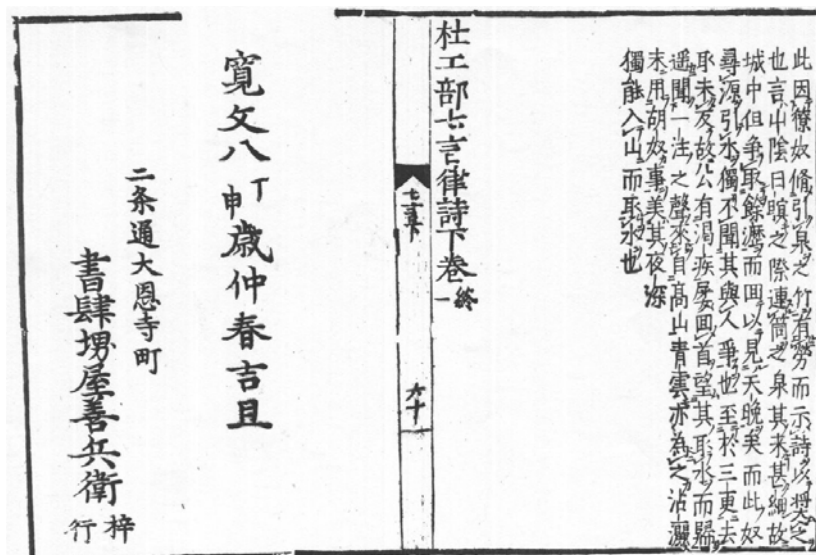 此因獠奴脩引泉之竹有勞而示詩以奬之
也言山陰日暝之際連筒之泉其来甚細故
城中但争取餘瀝而囬以見天晩矣而此奴
尋源引水獨不聞其與人爭也至於三更去
取未反故公有渴疾屡囬首望其取水而歸
遥聞一注之聲來自髙山青雲亦為之沾灑
末用胡奴事美其夜深
獨能入山而取水也
杜工部七言律詩下卷終
七言下
六十
寛文八丁申歳仲春吉旦
二条通大恩寺町
書肆堺屋善兵衛
梓行